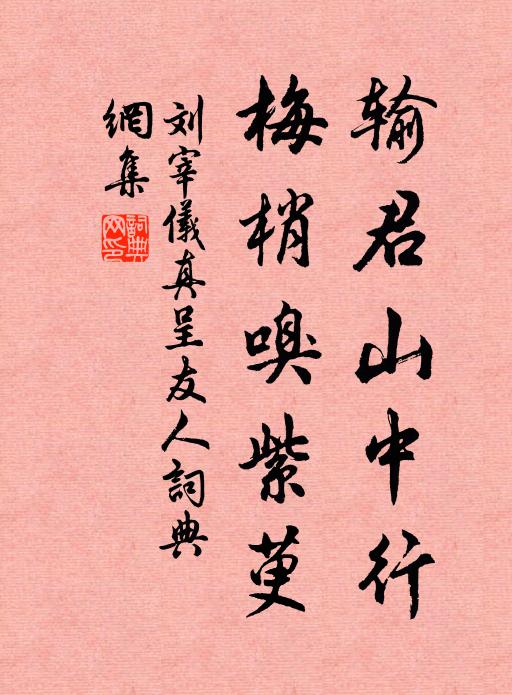 输君山中行
梅梢嗅紫萸
刘宰儀真呈友人詞典
網集
詞典网印